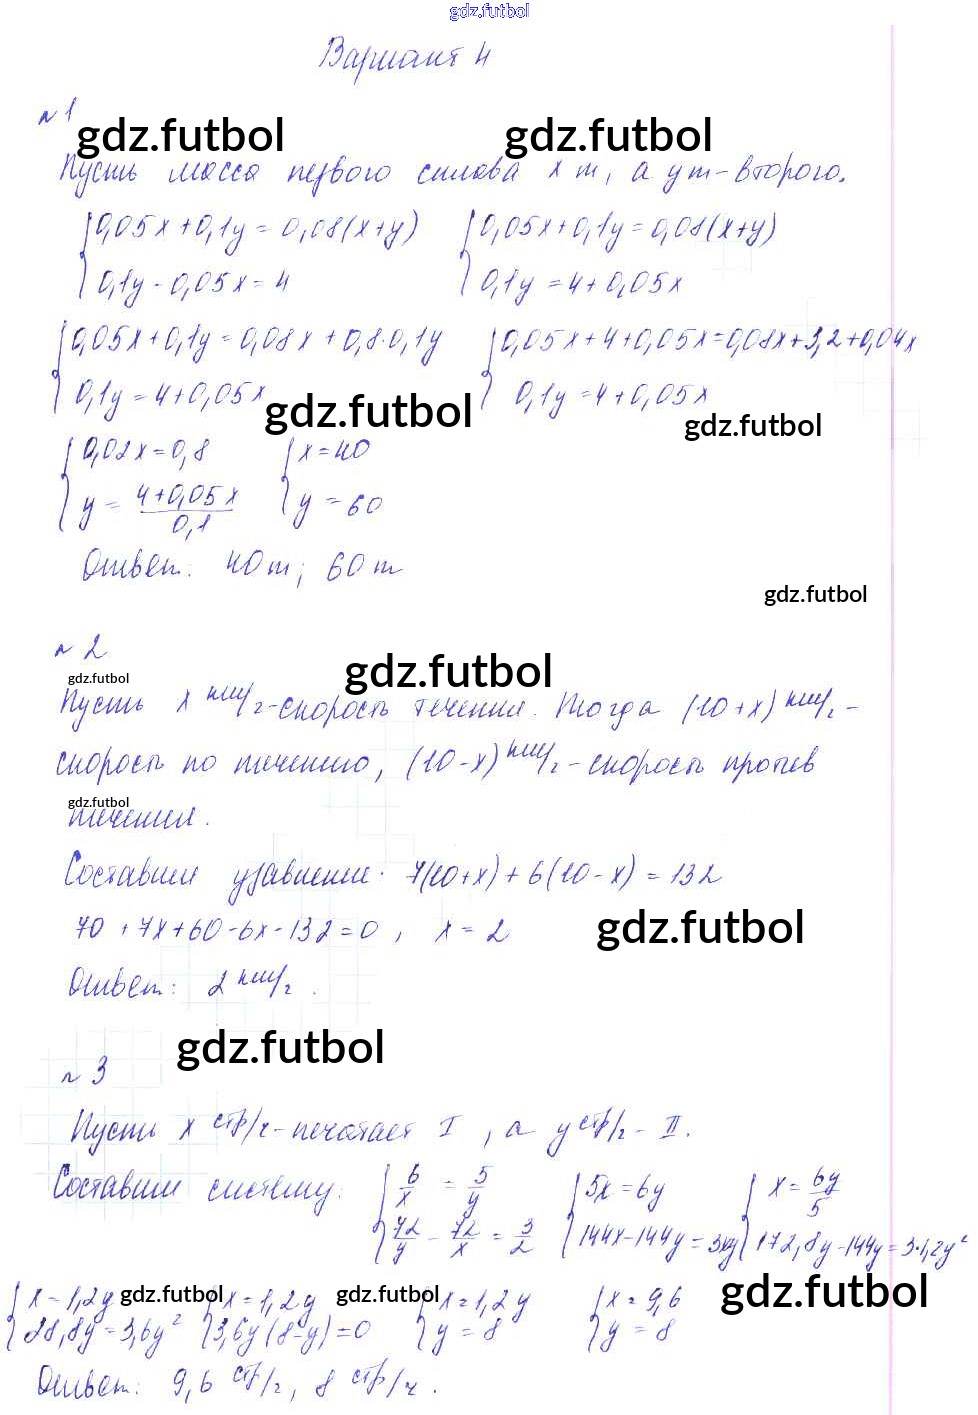 gdz.futbol
Вариант 4
№1
gdz.futbol gdz.futbol
Пусть масса первого сплава x т, а y т - второго.
{0,05x+0,1y=0,08(x+y) {0,05x+0,1y=0,08(x+y)
0,1y-0,05x=4 0,1y=4+0,05x
{0,05x+0,1y=0,08x+0,8·0,1y {0,05x+4+0,05x=0,08x+3,2+0,04x
0,1y=4+0,05x 0,1y=4+0,05x
gdz.futbol gdz.futbol
{0,02x=0,8 {x=40
y=(4+0,05x)/0,1 y=60
Ответ: 40 т; 60 т
gdz.futbol
№2
gdz.futbol gdz.futbol
Пусть x км/г-скорость течения. Тогда (10+x) км/г -
скорость по течению, (10-x) км/г - скорость против
gdz.futbol
течения.
Составим уравнение: 7(10+x)+6(10-x)=132
70+7x+60-6x-132=0, x=2
gdz.futbol
Ответ: 2 км/г.
gdz.futbol
№3
Пусть x стр/ч - печатает I, а y стр/г - II.
Составим систему: {6/x = 5/y {5x=6y {x=6y/5
72/y - 72/x = 3/2 144x-144y=3xy 172,8y-144y=3·1,2y²
gdz.futbol gdz.futbol gdz.futbol
{x=1,2y {x=1,2y {x=1,2y {x=9,6
28,8y=3,6y² 3,6y(8-y)=0 y=8 y=8
Ответ: 9,6 стр/г, 8 стр/ч.